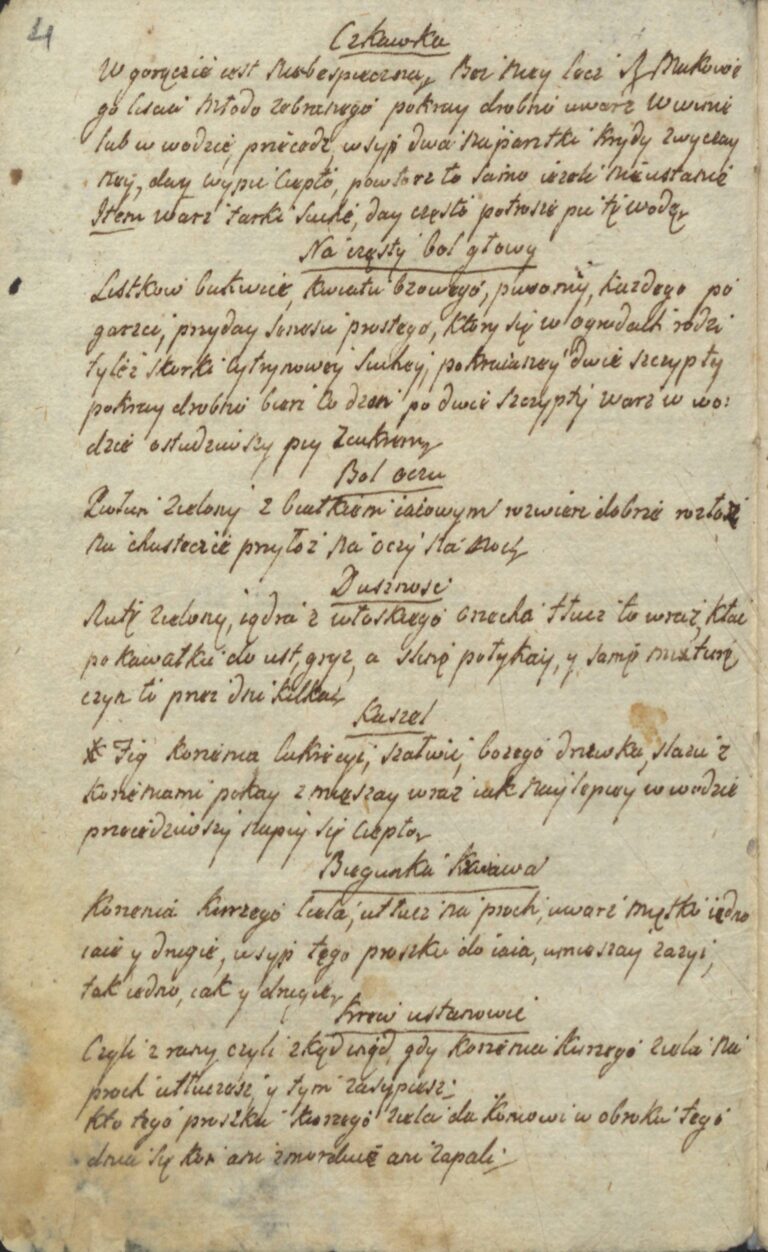 4
Czkawka
W gorączce iest niebespieczna, Bez niey lecz Makowe
go liscia młodo zebranego pokray drobno uwarz w winie
lub w wodzie, przecedz, wsyp dwa naparstki krydy zwyczay
ney, day wypic ciepło, powtorz to samo iezeli nieustanie
Item warz tarki suche, day często potrosze pic tę wodę
Na częsty bol głowy
Listkow bukwicie, kwiatu bzowego, piwonij, kazdego po
garzci, przyday senesu prostego, ktory się w ogrodach rodzi
tylez skorki cytrynowey suchey, pokraianey dwie szczypty
pokray drobno bierz co dzen po dwie szczypty warz w wo:
dzie ostudziwszy piy z cukrem
Bol oczu
Piołun zielony z białkiem iaiowym rozwierc dobrze rozłoz
na chusteczce przyłoz na oczy na noc
Dusznosc
Rutę zieloną, iądra z włoskiego orzecha tłucz to wraz, kłac
po kawałku do ust, gryz, a slinę połykay, y samę mixturę,
czyn to przez dni kilka
Kaszel
Fig korzenia lukrecyi, szałwii, bozego drzewka, slazu z
korzeniami pokay zmięszay wraz iak naylepiey w wodzie
przecedziwszy napiy się ciepło
Biegunka krwawa
Korzenia kurzego ziela, utłucz na proch, uwarz miętko iedno
iaie y drugie, wsyp tego proszku do iaia, umieszay zazyi,
tak iedno, iak y drugie
Krew ustanowic
Czyli z rany czyli zkądinąd, gdy korzenia kurzego ziela na
proch utłuczesz y tym zasypiesz:
kto tego proszku kurzego ziela da koniowi w obroku tego
dnia się kon ani zmorduie ani zapali: